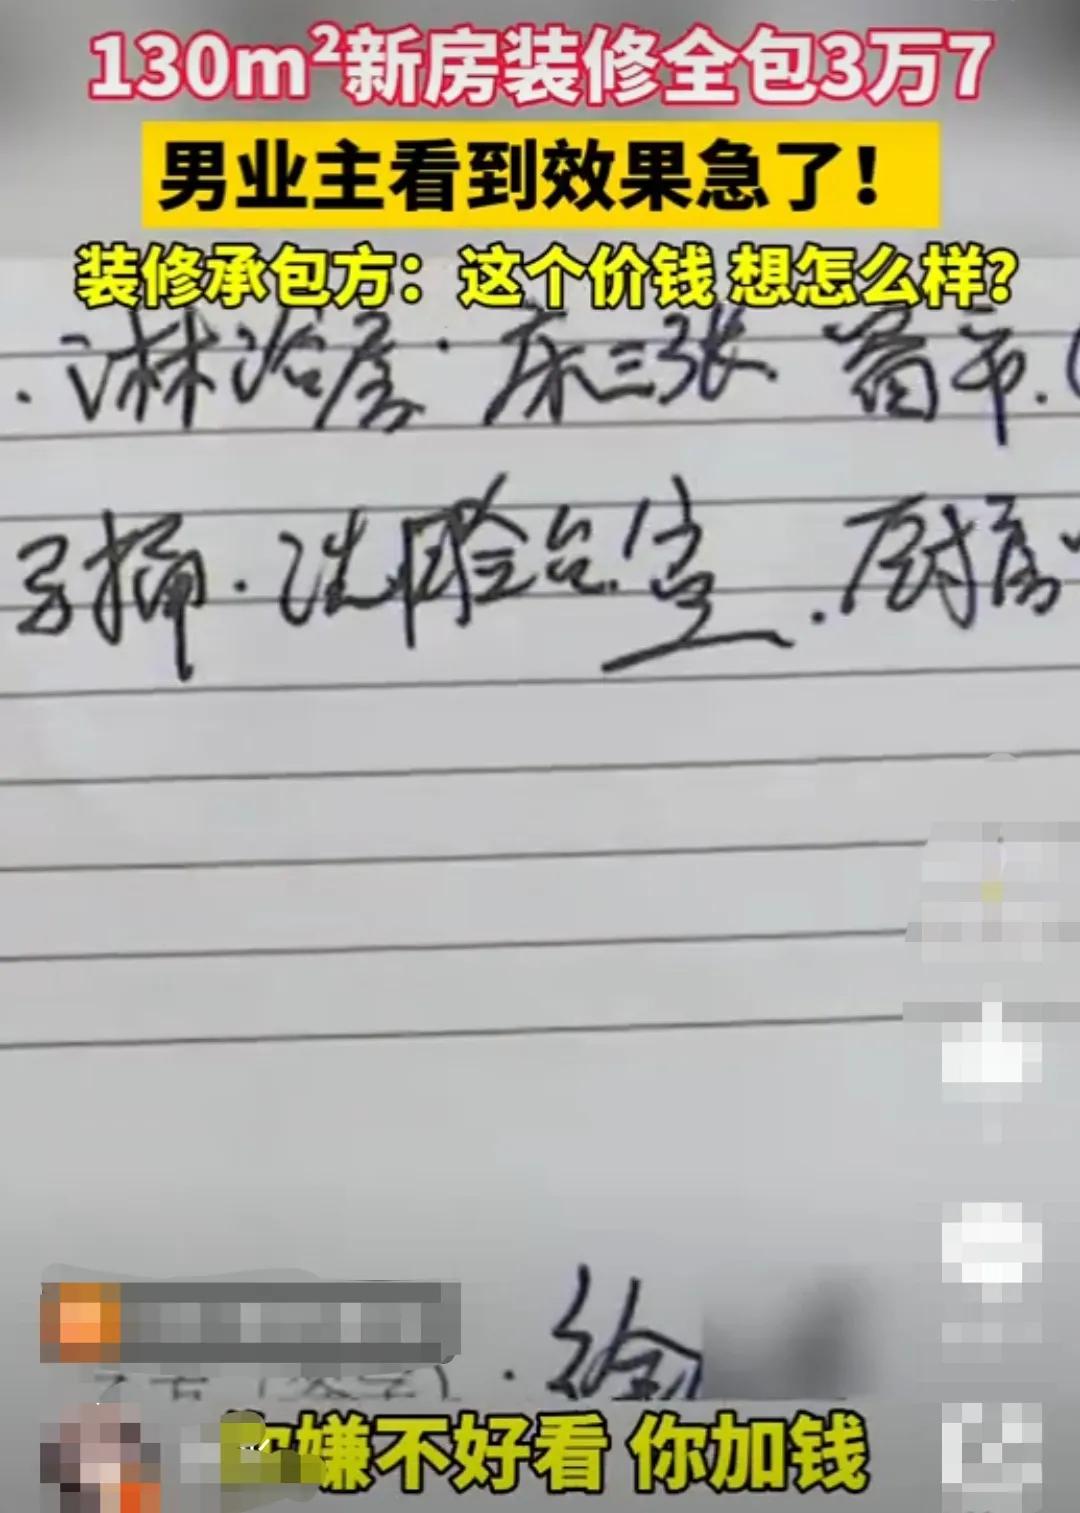 130m²新房装修全包3万7
男业主看到效果急了！
装修承包方：这个价钱 想怎么样？
.淋浴房.床三张.窗帘.
马桶.洗脸台.1宝.厨房
乙方（签字）.徐
你嫌不好看 你加钱